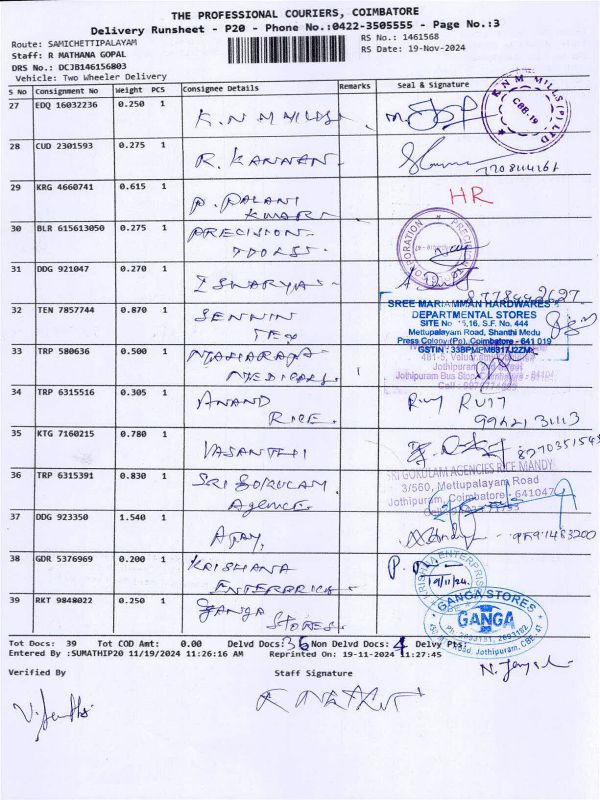 THE PROFESSIONAL COURIERS, COIMBATORE
Delivery Runsheet - P20 - Phone No.:0422-3505555 - Page No.:3
Route: SAMICHETTIPALAYAM
RS No.: 1461568
Staff: R MATHANA GOPAL
RS Date: 19-Nov-2024
DRS No.: DCJB146156803
Vehicle: Two Wheeler Delivery
S No Consignment No Weight PCS Consignee Details Remarks Seal & Signature
27 EDQ 16032236 0.250 1 K.N M MILLS
K.N.M MILLS (P) LTD
CBE-19
28 CUD 2301593 0.275 1 R. KANNAN
29 KRG 4660741 0.615 1 P. PALANI KUMAR HR
30 BLR 615613050 0.275 1 PRECISION TOOLS
31 DDG 921047 0.270 1 ISWARYA
32 TEN 7857744 0.870 1 SENNIN TEX
SREE MARIAMMAN HARDWARES
DEPARTMENTAL STORES
SITE No 15,16, S.F. No. 444
Mettupalayam Road, Shanthi Medu
Press Colony (Po), Coimbatore - 641 019
33 TRP 580636 0.500 1 MAHARAJA MEDICALS
Jothipuram Bus Stop
34 TRP 6315516 0.305 1 ANAND RICE
35 KTG 7160215 0.780 1 VASANTHI
36 TRP 6315391 0.830 1 SRI GOKULAM Agencies
SRI GOKULAM AGENCIES RICE MANDY
3/560, Mettupalayam Road
Jothipuram, Coimbatore - 641047
37 DDG 923350 1.540 1 AJAY
38 GDR 5376969 0.200 1 KRISHANA ENTERPRICE
19/11/24
39 RKT 9848022 0.250 1 GANGA STORES
GANGA STORES
GANGA
Tot Docs: 39 Tot COD Amt: 0.00 Delvd Docs: 36 Non Delvd Docs: 4 Delvy Pts:
Entered By :SUMATHIP20 11/19/2024 11:26:16 AM Reprinted On: 19-11-2024 11:27:45
Verified By Staff Signature